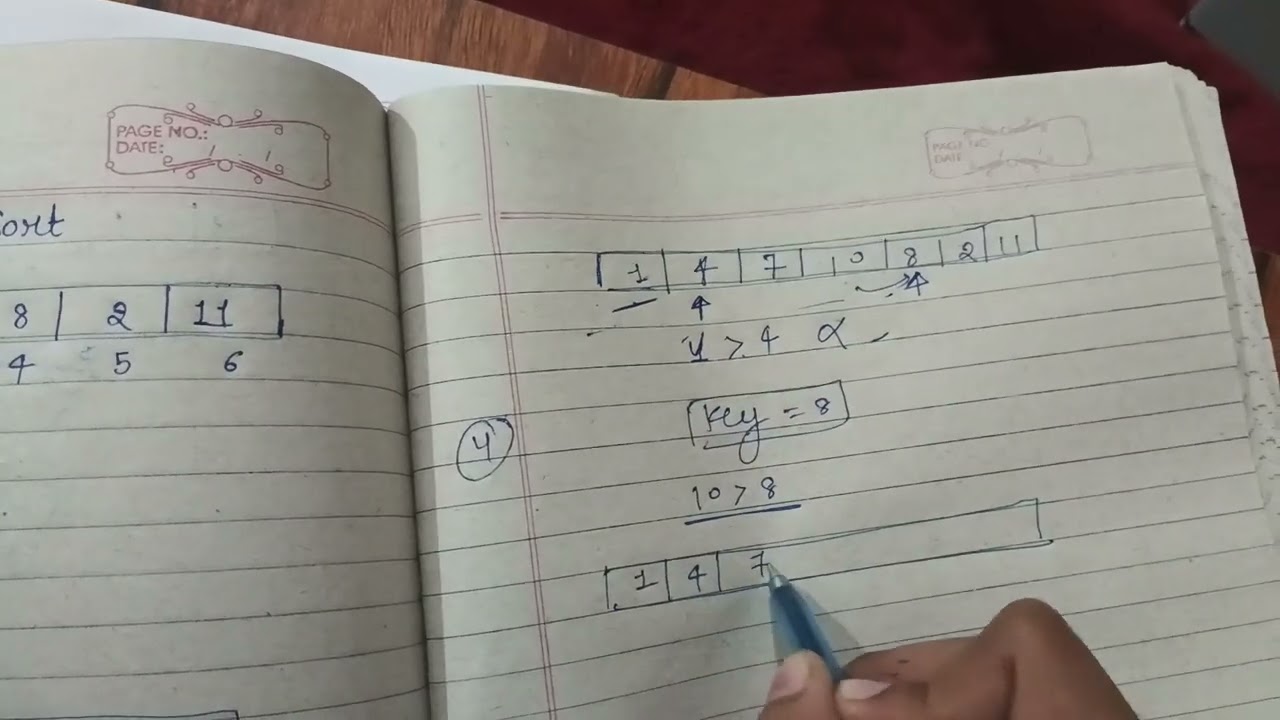 PAGE NO.:
DATE: / /
ort
8 2 11
4 5 6
PAGE NO
DATE
1 4 7 10 8 2 11
1 > 4
4
Key = 8
10 > 8
1 4 7